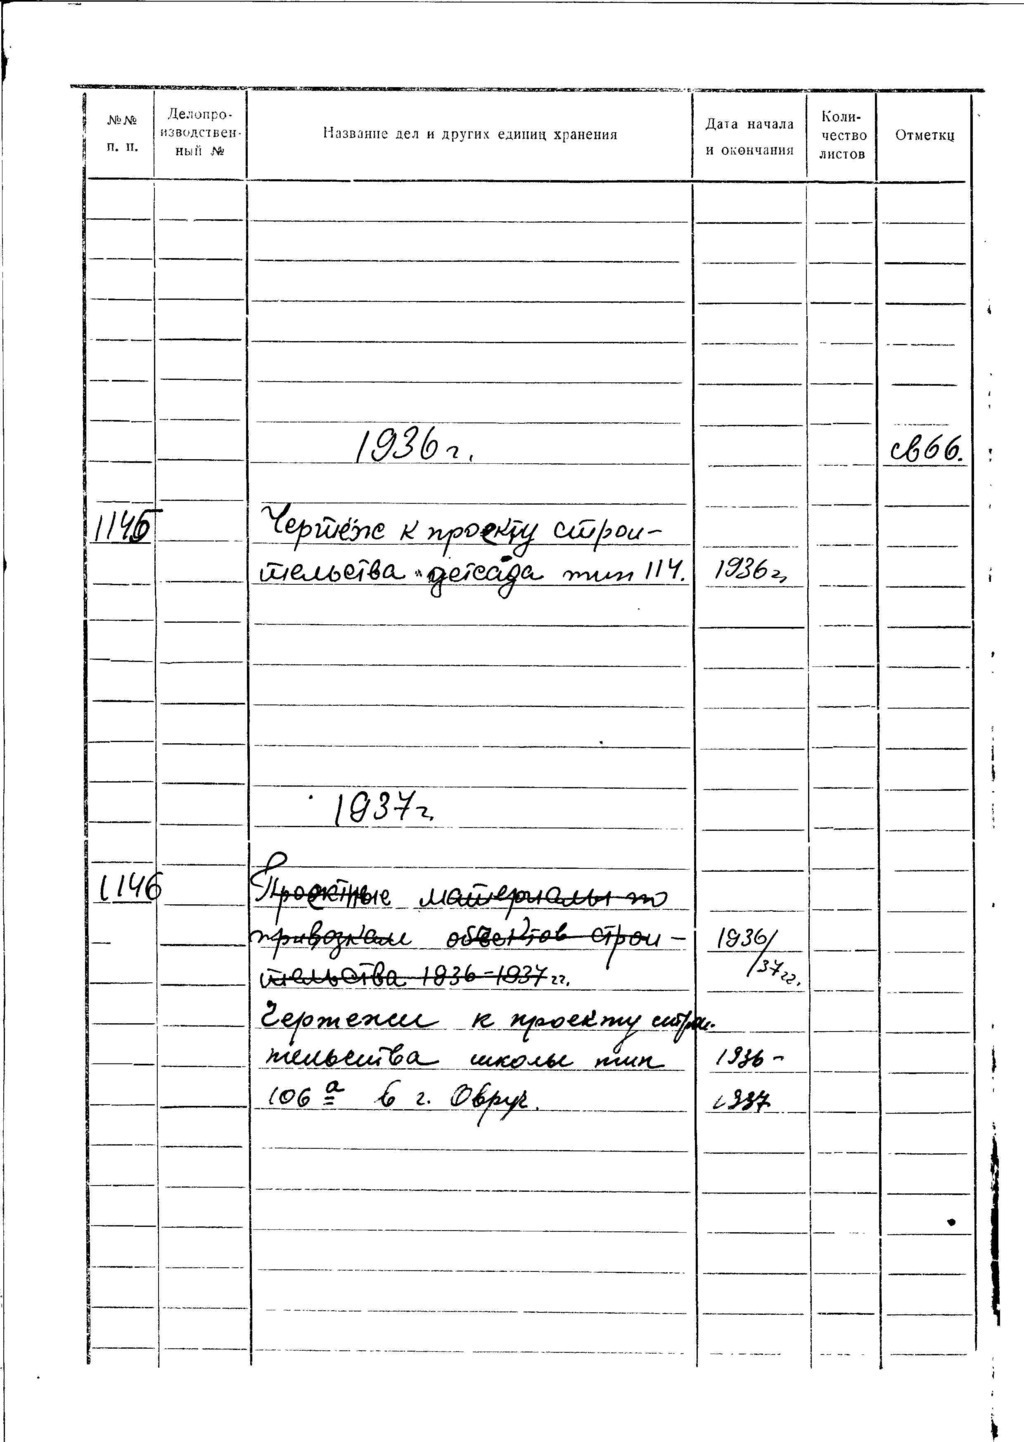 №№ п. п.
Делопро-
изводствен-
ный №
Название дел и других единиц хранения
Дата начала
и окончания
Коли-
чество
листов
Отметки
1936 г. св 66.
1145 Чертёж к проекту строи-
тельства "детсада тип 114. 1936 г,
1937 г.
1146 Проектные материалы по
привязкам объектов строи- 1936/
тельства 1936-1937 гг. /37 гг.
Чертежи к проекту строи-
тельства школы тип 1936-
106 а в г. Овруч. 1937